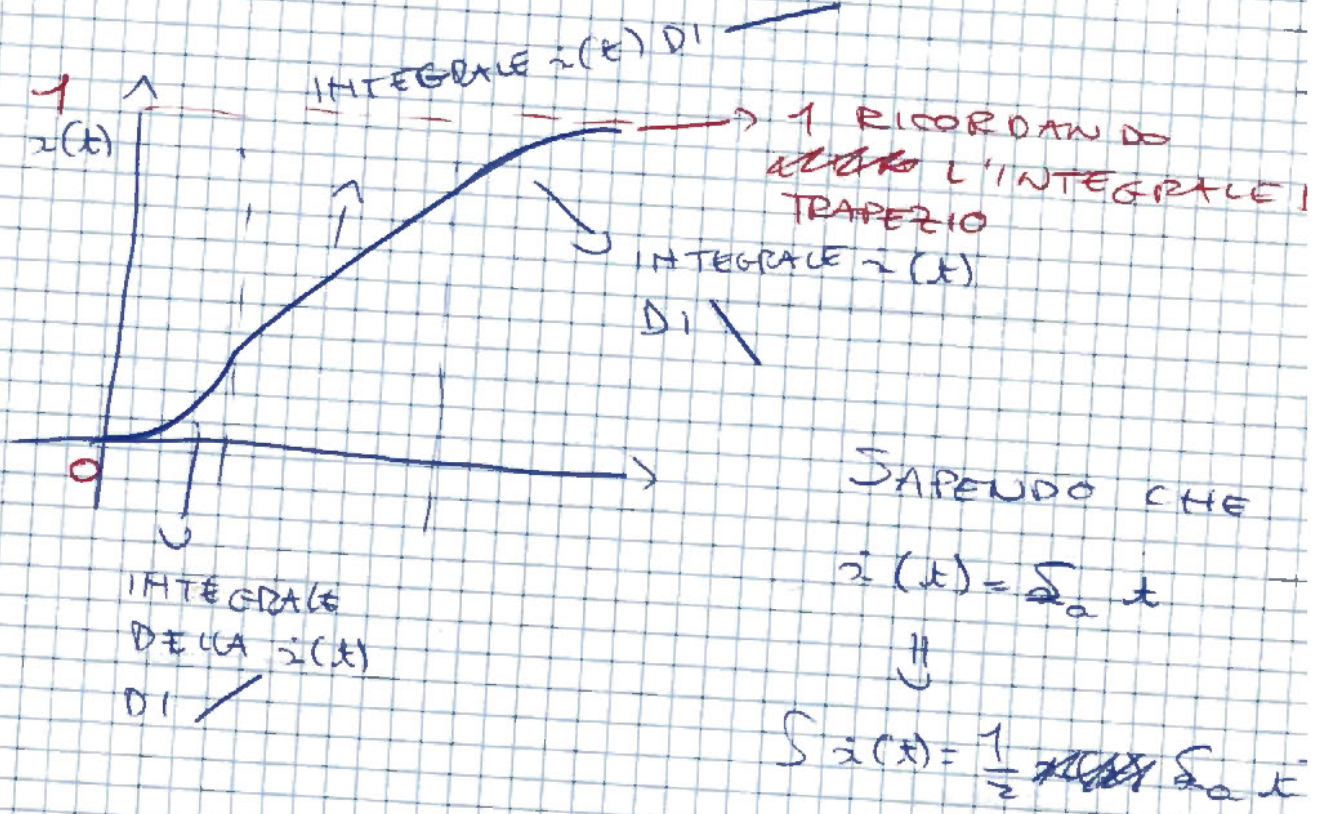 INTEGRALE ṡ(t) DI
1
s(t)
→ 1 RICORDANDO
L'INTEGRALE
TRAPEZIO
INTEGRALE ṡ(t)
DI
0
INTEGRALE
DELLA ṡ(t)
DI
SAPENDO CHE
ṡ(t) = Sₐ t
⇓
∫ ṡ(t) = 1/2 Sₐ t